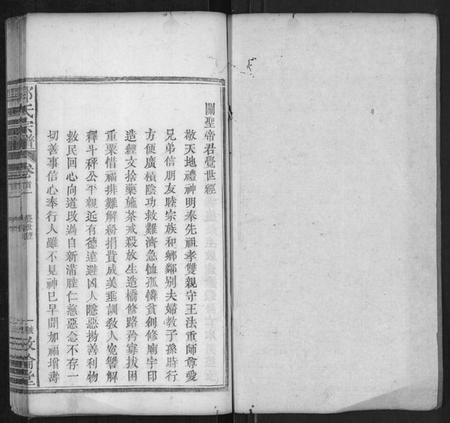 關聖帝君覺世經
敬天地禮神明奉先祖孝雙親守王法重師尊愛
兄弟信朋友睦宗族和鄉鄰別夫婦教子孫時行
方便廣積陰功救難濟急恤孤憐貧創修廟宇印
造經文捨藥施茶戒殺放生造橋修路矜寡拔困
重粟惜福排難解紛捐貲成美垂訓教人寃讐解
釋斗秤公平親近有德遠避凶人隱惡揚善利物
救民回心向道改過自新滿腔仁慈惡念不存一
切善事信心奉行人雖不見神已早聞加福增壽
氏宗譜
卷首
敘倫堂